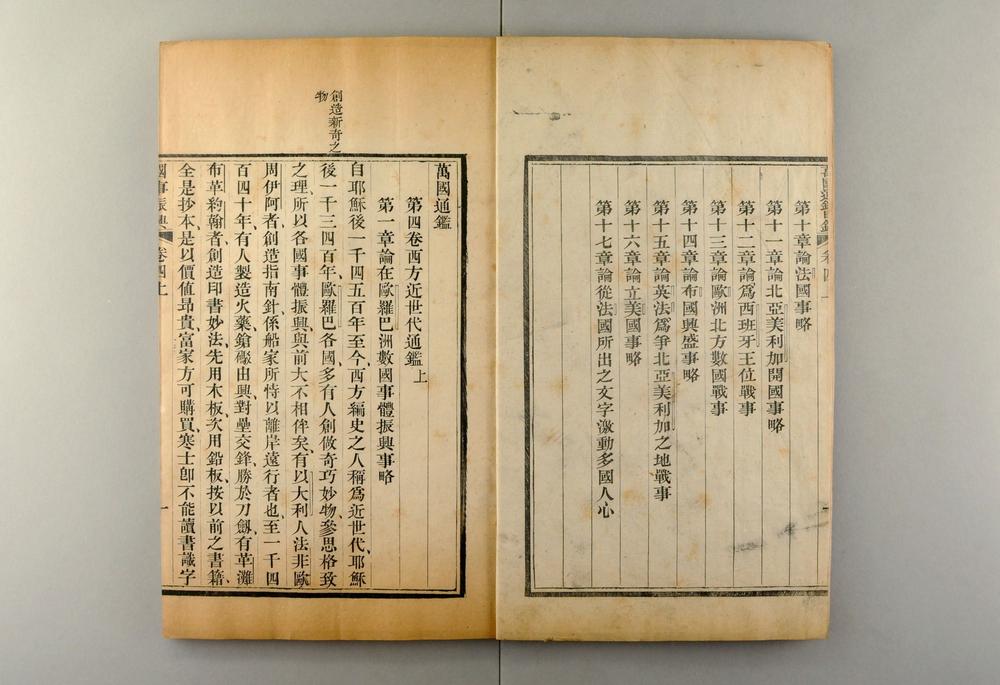 第十章論法國事略
第十一章論北亞美利加開國事略
第十二章論爲西班牙王位戰事
第十三章論歐洲北方數國戰事
第十四章論布國興盛事略
第十五章論英法爲爭北亞美利加之地戰事
第十六章論立美國事略
第十七章論從法國所出之文字激動多國人心
萬國通鑑
第四卷西方近世代通鑑上
第一章論在歐羅巴洲數國事體振興事略
創造新奇之
物
自耶穌後一千四五百年至今西方編史之人稱爲近世代、耶穌
後一千三四百年、歐羅巴各國多有人創做奇巧妙物、參思格致
之理、所以各國事體振興、與前大不相侔矣、有以大利人法非歐
周伊阿者、創造指南針、係船家所恃以離岸遠行者也、至一千四
百四十年、有人製造火藥鎗礮、由興對壘交鋒、勝於刀劍、有革灘
布革約翰者、創造印書妙法、先用木板、次用鉛板、按以前之書籍、
全是抄本、是以價値昻貴、富家方可購買、寒士卽不能讀書識字
卷四上
一